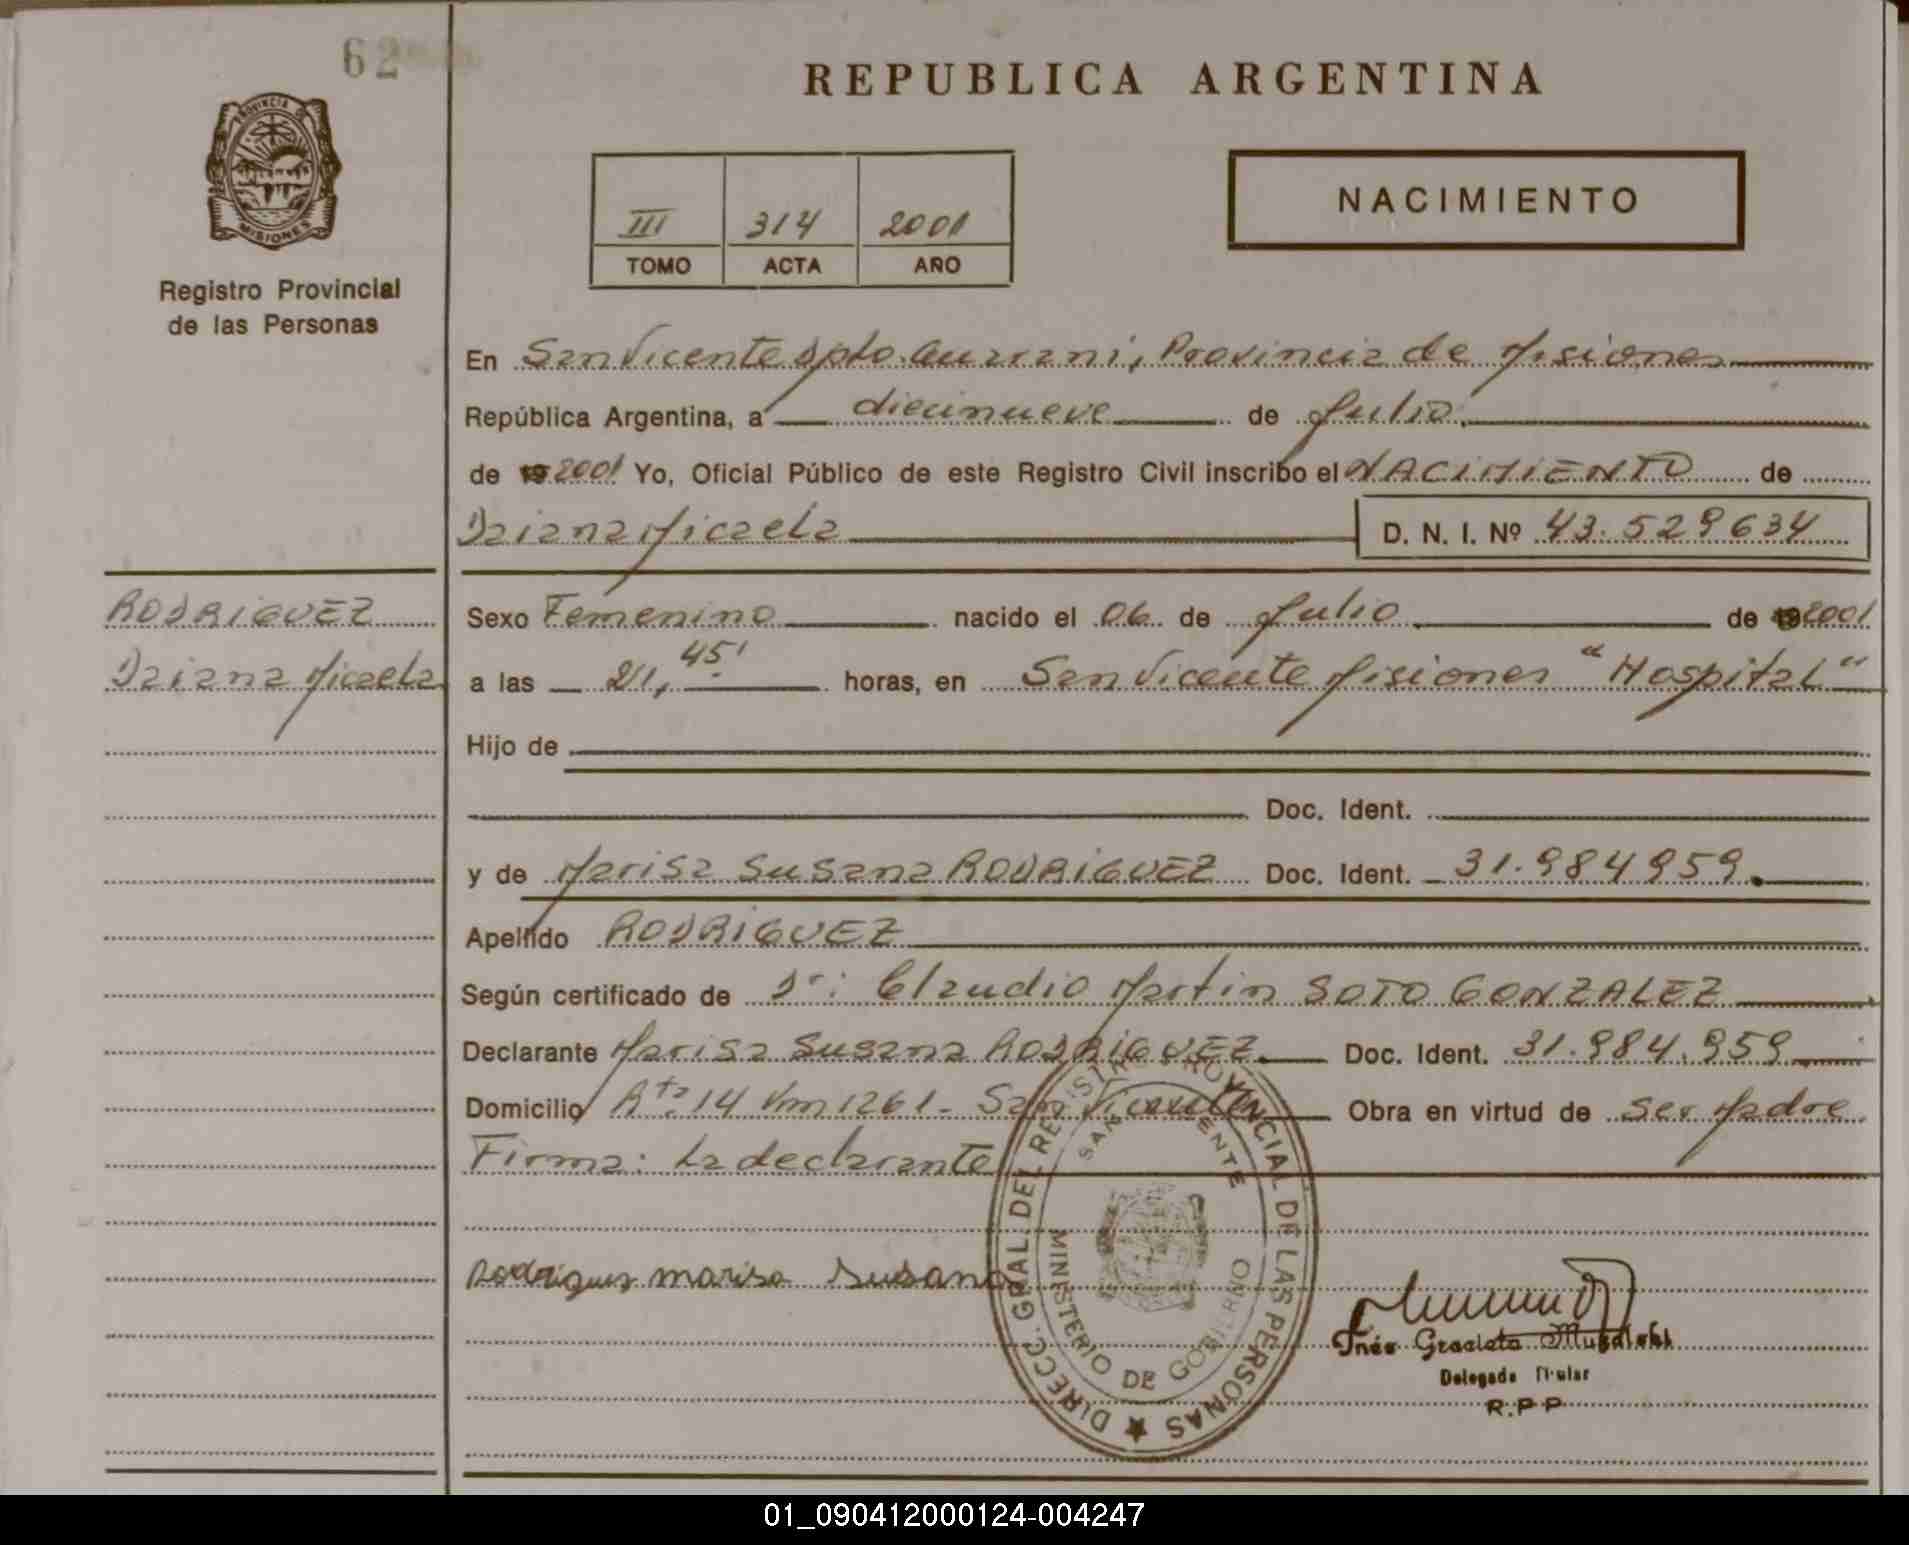 62
REPUBLICA ARGENTINA
PROVINCIA DE
MISIONES
Registro Provincial
de las Personas
III 314 2001
TOMO ACTA AÑO
NACIMIENTO
En San Vicente dpto. Guarani, Provincia de Misiones
República Argentina, a diecinueve de Julio
de 19 2001 Yo, Oficial Público de este Registro Civil inscribo el NACIMIENTO de
Daiana Micaela D. N. I. Nº 43.529634
RODRIGUEZ
Daiana Micaela
Sexo Femenino nacido el 06 de Julio de 19 2001
a las 21, 45' horas, en San Vicente Misiones "Hospital"
Hijo de
Doc. Ident.
y de Marisa Susana RODRIGUEZ Doc. Ident. 31.984959.
Apellido RODRIGUEZ
Según certificado de Dr: Claudio Martin SOTO GONZALEZ
Declarante Marisa Susana RODRIGUEZ. Doc. Ident. 31.984.959
Domicilio Rta 14 Km 1261 - San Vicente Obra en virtud de ser Madre
Firma: La declarante
DIRECC. GRAL. DEL REGISTRO PROVINCIAL DE LAS PERSONAS
SAN VICENTE
MINISTERIO DE GOBIERNO
Rodriguez marisa Susana
Inés Graciela
Delegada Titular
R.P.P
01_090412000124-004247